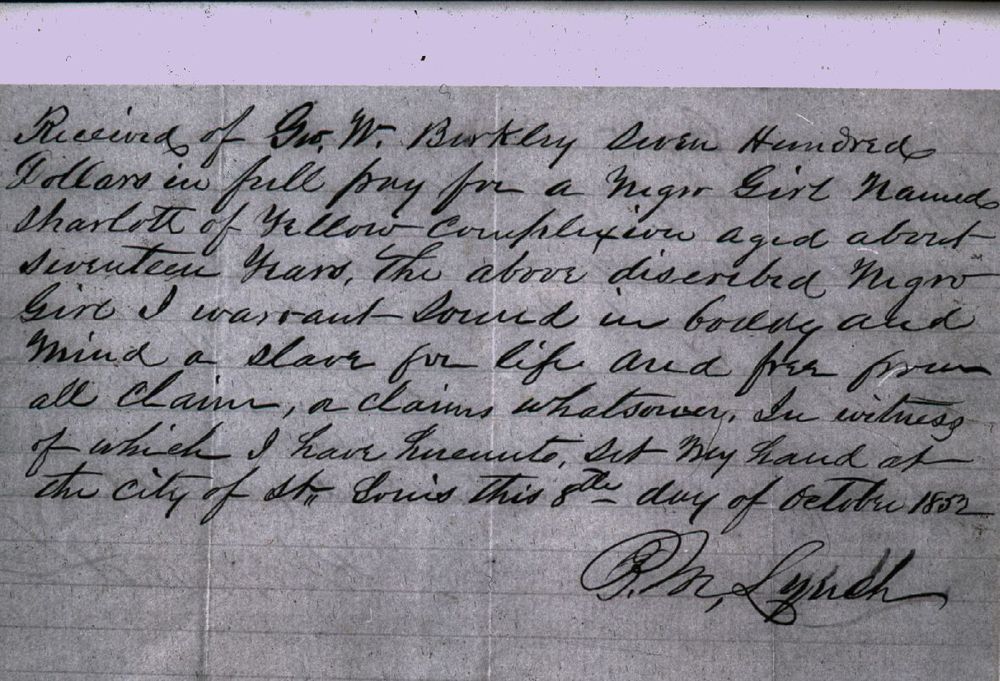 Received of Geo. W. Burkley Seven Hundred
Dollars in full pay for a Negro Girl Named
Sharlott of Yellow Complexion aged about
Seventeen Years, The above discribed Negro
Girl I warrant Sound in boddy and
Mind a Slave for life and free from
all Claim, or claims whatsoever. In witness
of which I have hereunto, set My hand at
the City of St. Louis this 8th day of October 1852
B. M. Lynch